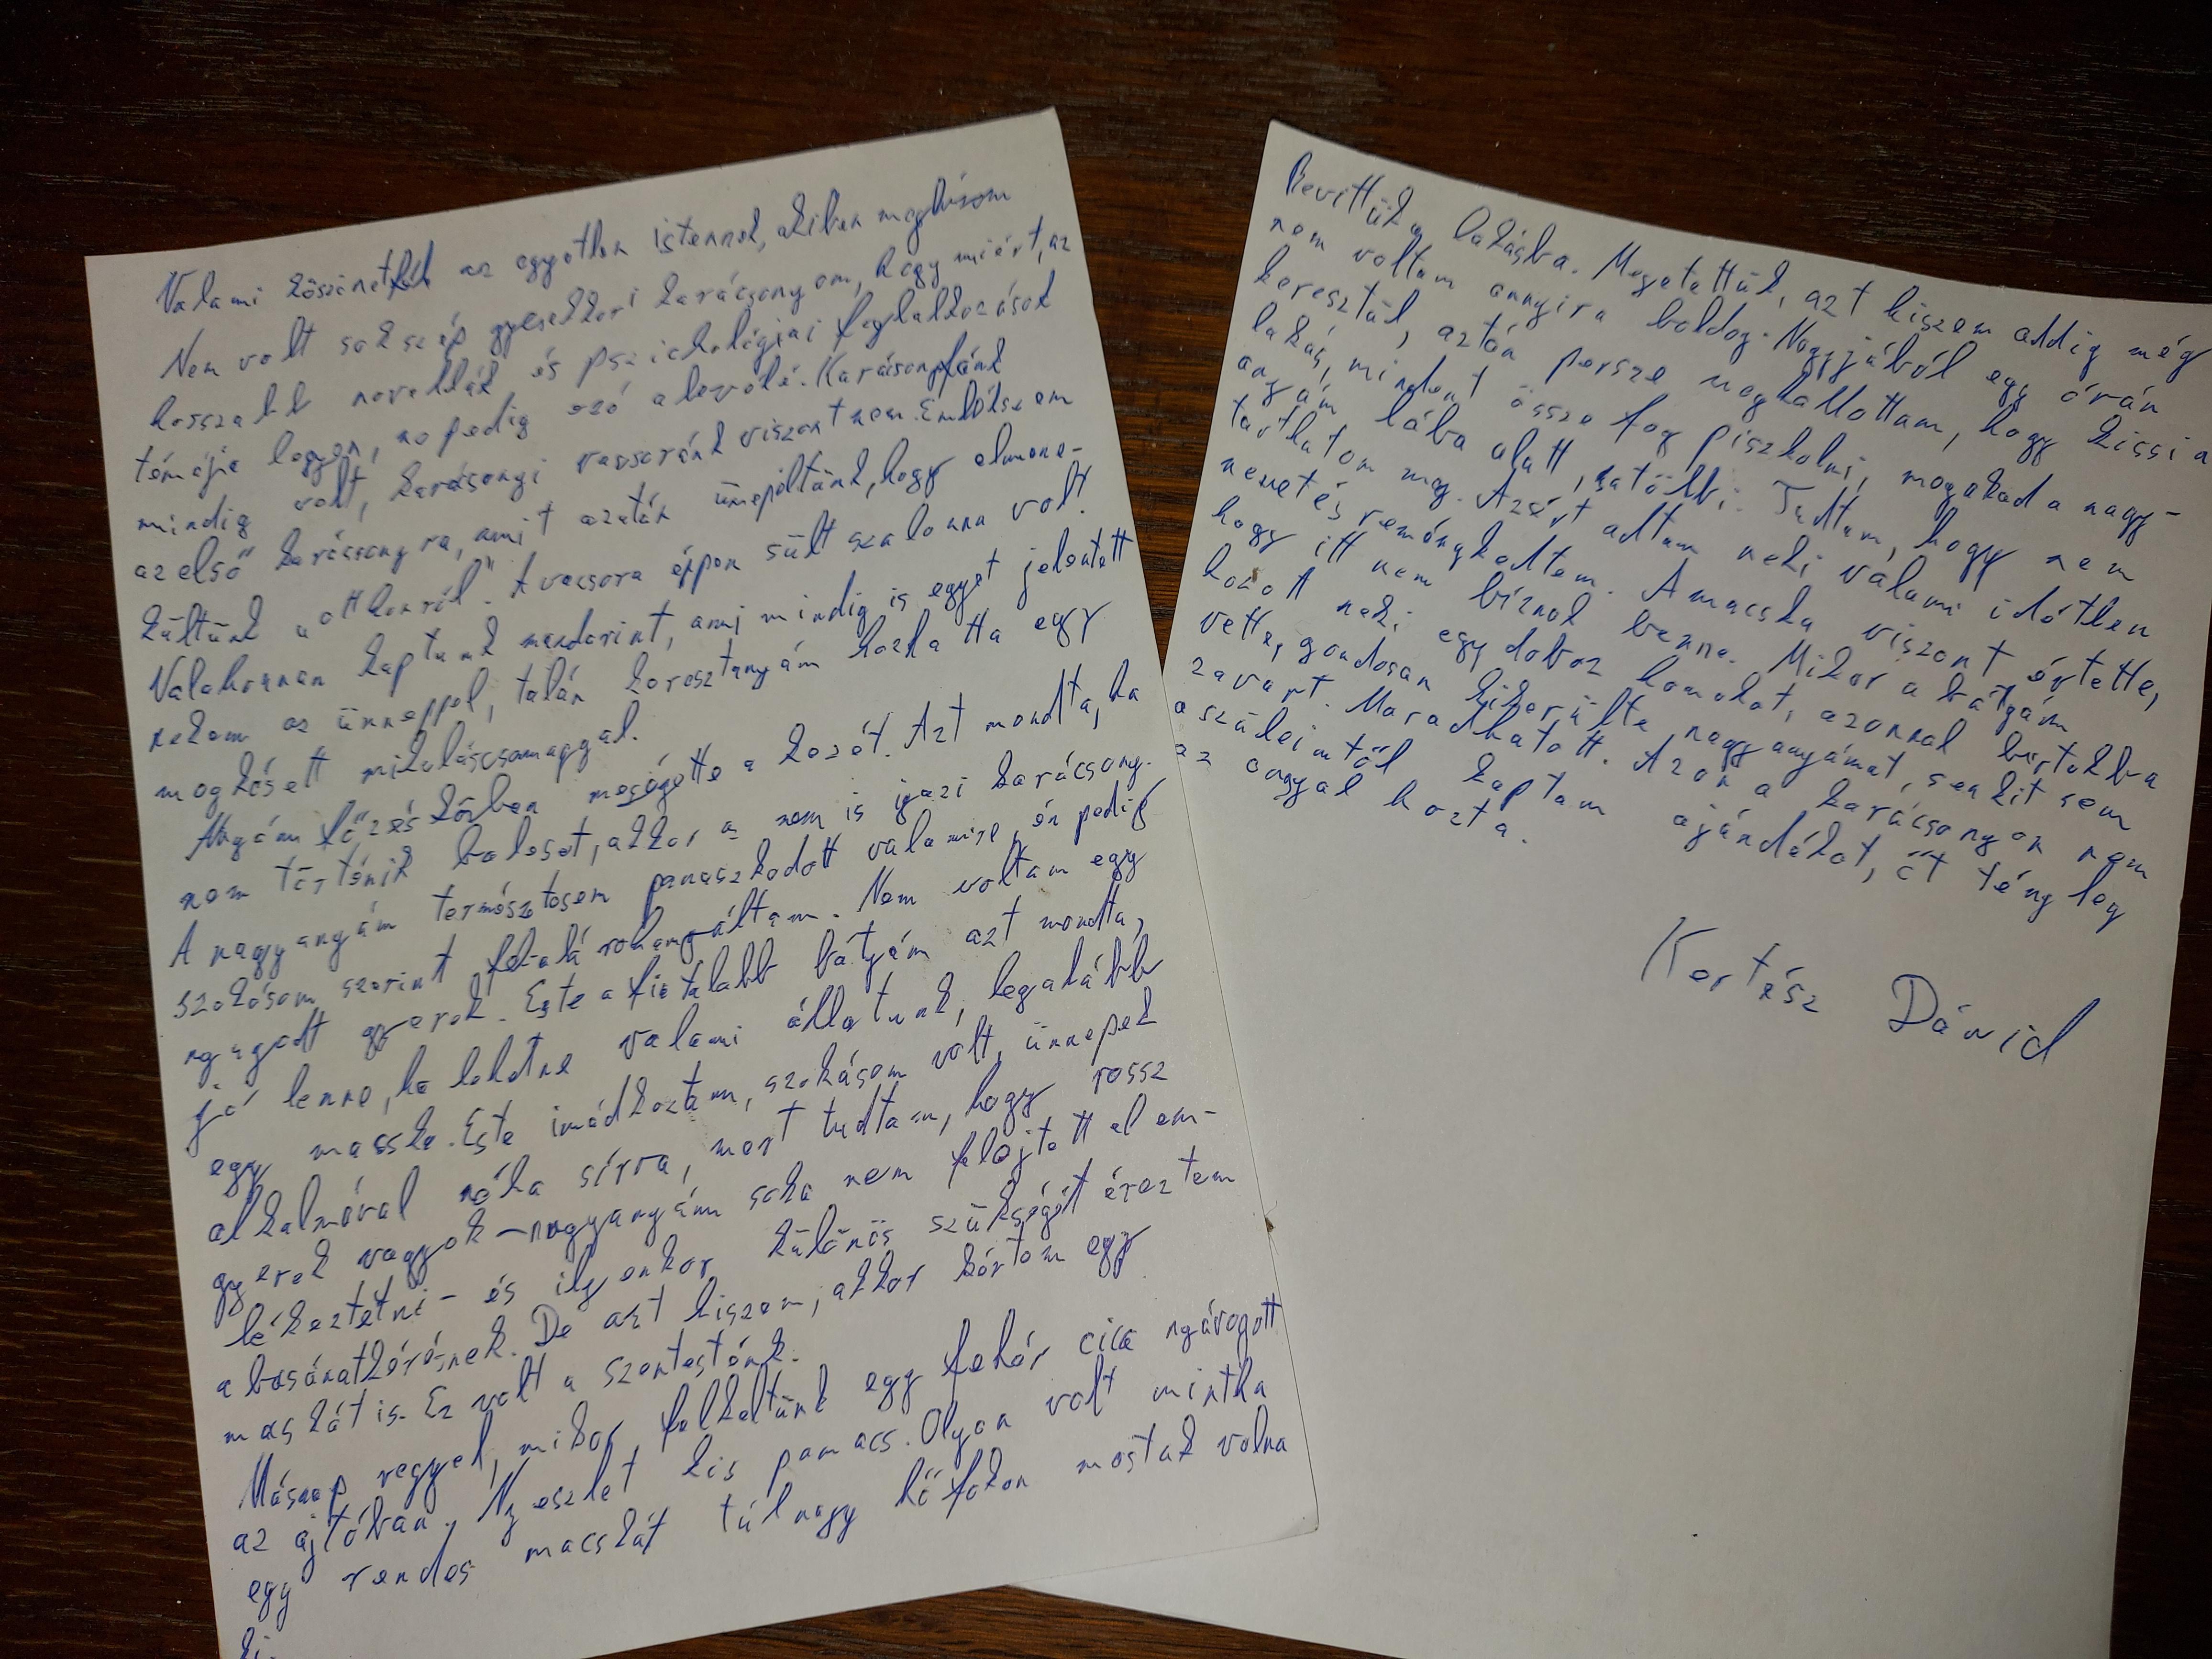 Valami köszönetféle az egyetlen istennek, akiben megbízom
Nem volt sok szép gyerekkori karácsonyom, hogy miért, az
hosszabb novellák és pszichológiai foglalkozások
témája legyen, ne pedig ezé a levélé. Karácsonyfánk
mindig volt, karácsonyi vacsoránk viszont nem. Emlékszem
az első karácsonyra, amit azután ünnepeltünk, hogy elmene-
kültünk "otthonról". A vacsora éppen sült szalonna volt.
Valahonnan kaptunk mandarint, ami mindig is egyet jelentett
nekem az ünneppel, talán keresztanyám hozhatta egy
megkésett mikuláscsomaggal.
Anyám főzés közben megégette a kezét. Azt mondta, ha
nem történik baleset, akkor az nem is igazi karácsony.
A nagyanyám természetesen panaszkodott valamire, én pedig
szokásom szerint fel-alá rohangáltam. Nem voltam egy
nyugodt gyerek. Este a fiatalabb bátyám azt mondta,
jó lenne, ha lehetne valami állatunk, legalább
egy macska. Este imádkoztam, szokásom volt, ünnepek
alkalmával néha sírva, mert tudtam, hogy rossz
gyerek vagyok – nagyanyám soha nem felejtett el em-
lékeztetni – és ilyenkor különös szükségét éreztem
a bocsánatkérésnek. De azt hiszem, akkor kértem egy
macskát is. Ez volt a szentesténk.
Másnap reggel, mikor felkeltünk egy fehér cica nyávogott
az ajtóban. Nyeszlet kis pamacs. Olyan volt mintha
egy rendes macskát túl nagy hőfokon mostak volna
ki.
Bevittük a lakásba. Megetettük, azt hiszem addig még
nem voltam annyira boldog. Nagyjából egy órán
keresztül, aztán persze meghallottam, hogy kiesik a
lakás, mindent össze fog piszkolni, megakad a nagy-
anyám lába alatt, satöbbi. Tudtam, hogy nem
tarthatom meg. Azért adtam neki valami idétlen
nevet és reménykedtem. A macska viszont értette,
hogy itt nem bíznak benne. Mikor a bátyám
hozott neki egy doboz homokot, azonnal birtokba
vette, gondosan kikerülte nagyanyámat, senkit sem
zavart. Maradhatott. Azon a karácsonyon nem
a szüleimtől kaptam ajándékot, őt tényleg
az angyal hozta.
Kertész Dávid